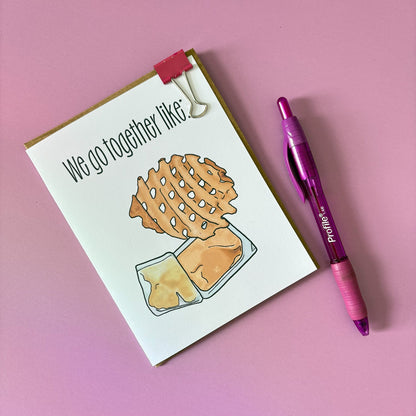 We go together like:
Profile 1.4